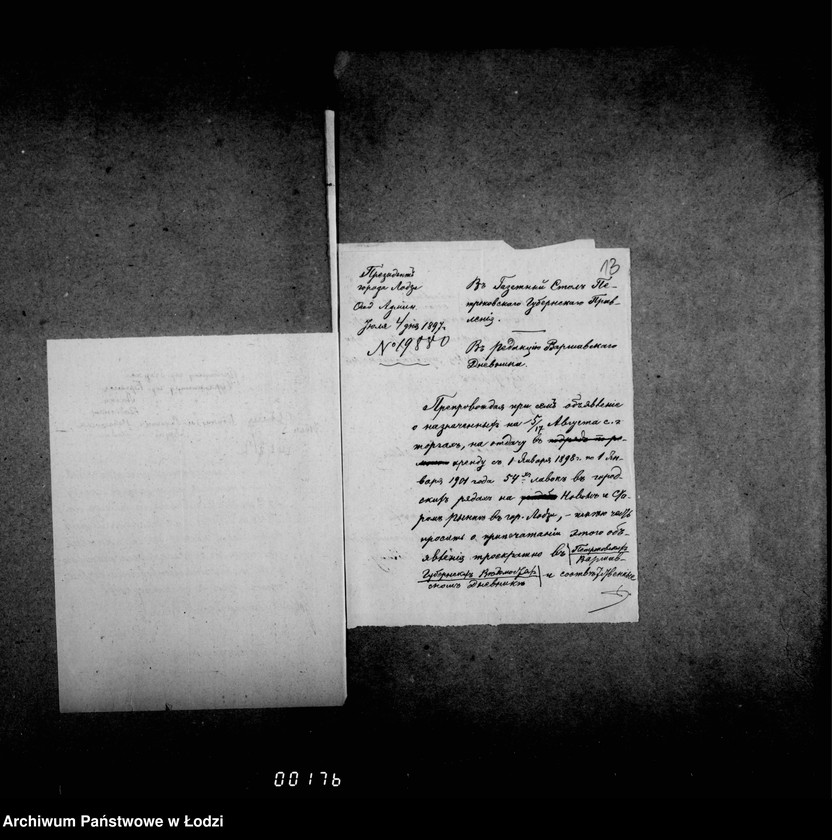 13
Президентъ
города Лодзи
Іюля 4 дня 1897 г.
№ 19840
Въ Газетный Столъ Пе-
троковскаго Губернскаго Прав-
ленія.
Въ редакцію Варшавскаго
Дневника.
Препровождая при семъ объявленіе
о назначенныхъ на 5/17 Августа с. г.
торгахъ, на отдачу въ
аренду съ 1 Января 1898 г. по 1 Ян-
варя 1901 года 54 лавокъ въ город-
скихъ рядахъ на Новомъ и Ста-
ромъ рынкѣ въ гор. Лодзи, – имѣю честь
просить о припечатаніи этого объ-
явленія троекратно въ Петроковскихъ
Губернскихъ Вѣдомостяхъ Варшав-
скомъ Дневникѣ и
00176
Archiwum Państwowe w Łodzi